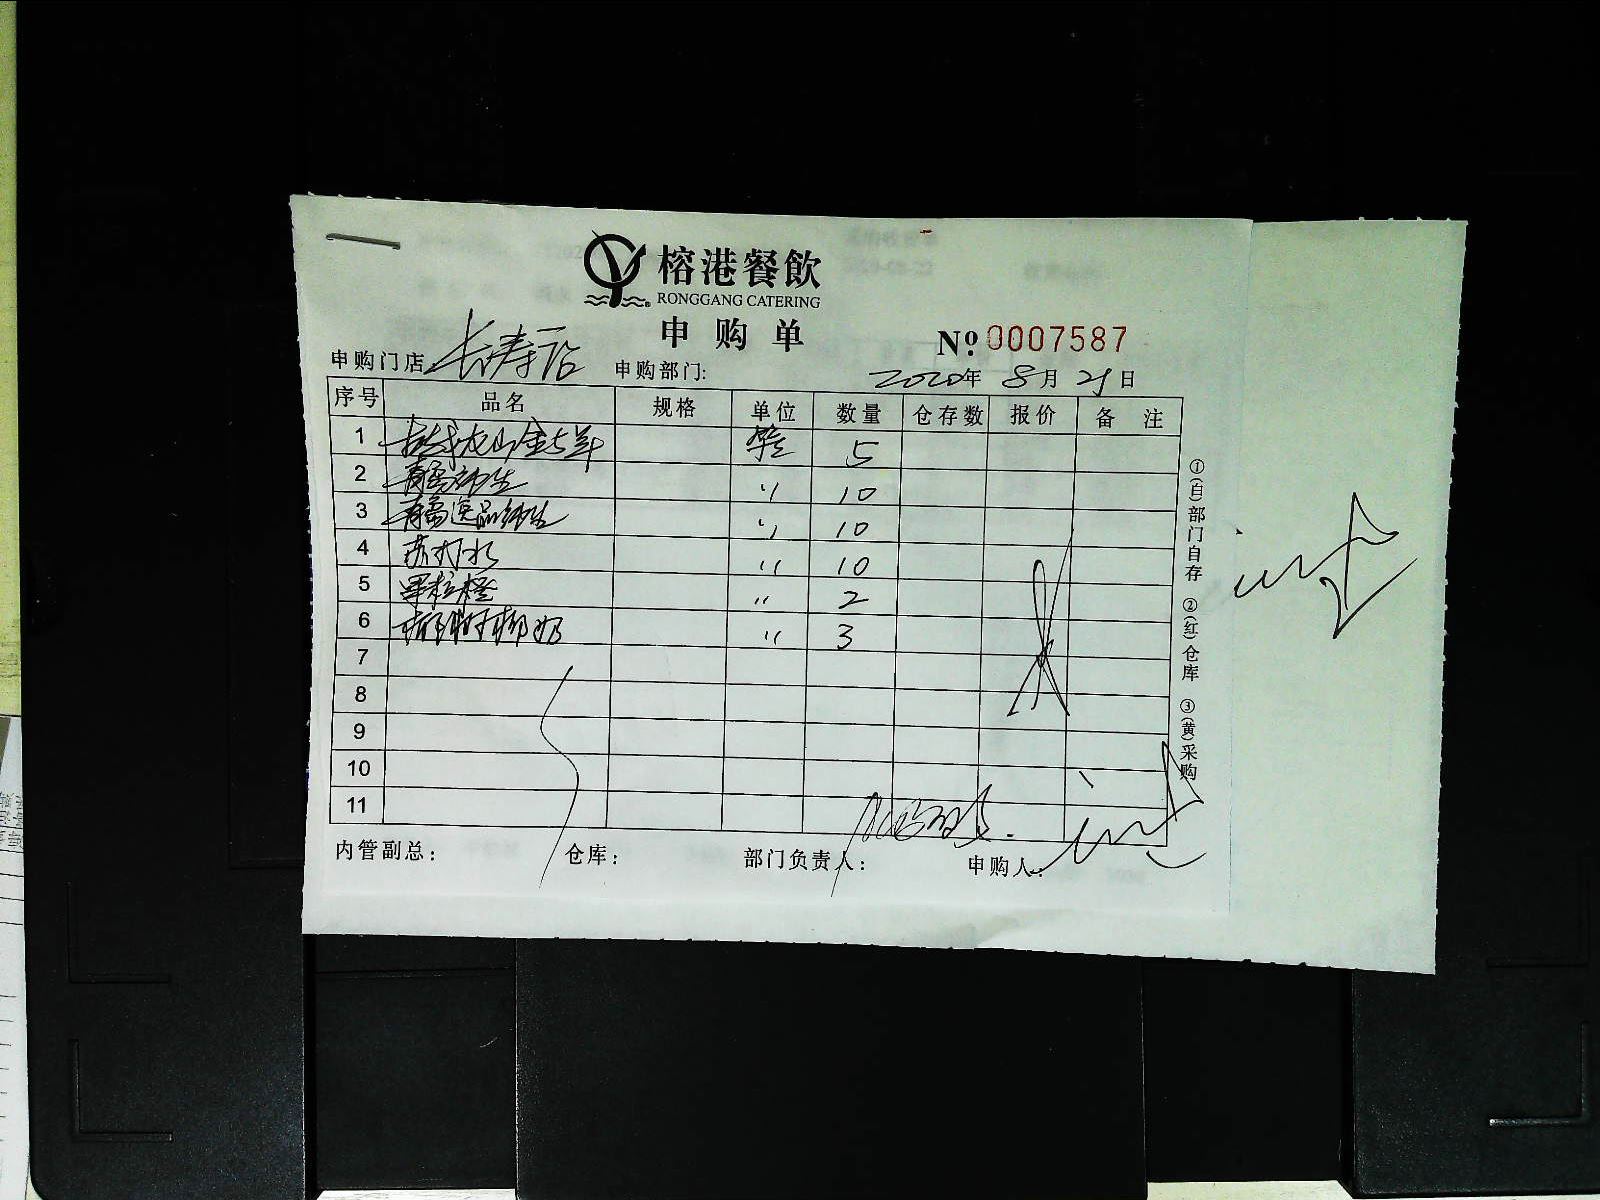 榕港餐飲
RONGGANG CATERING
申购单
№ 0007587
申购门店 长寿店 申购部门: 2020年 8月 21日
序号 品名 规格 单位 数量 仓存数 报价 备 注
1 5
2 青岛 〃 10
3 青岛逸品纯生 〃 10
4 苏打水 〃 10
5 果粒橙 〃 2
6 椰树椰奶 〃 3
7
8
9
10
11
内管副总: 仓库: 部门负责人: 申购人:
①(白)部门自存 ②(红)仓库 ③(黄)采购